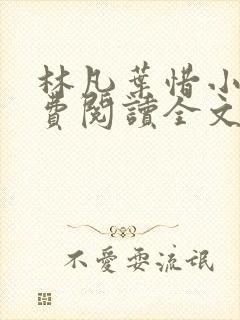 林凡葉惜小
費閱讀全文
不愛耍流氓